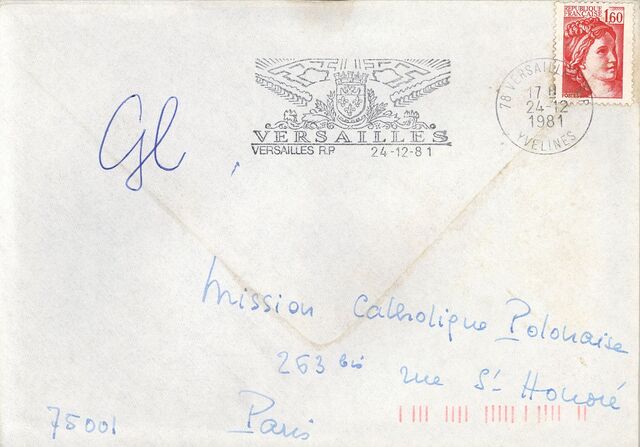 REPUBLIQUE
FRANCAISE
1,60
78 VERSAILLES R.P
17 H
24-12
1981
YVELINES
VERSAILLES
VERSAILLES R.P 24-12-81
Gl
Mission Catholique Polonaise
263 bis rue St Honoré
75001 Paris